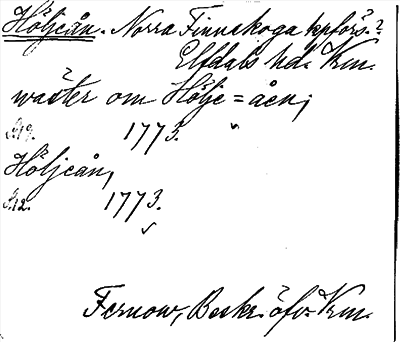 Höljeån. Norra Finnskoga kpförs.?
Elfdals hd. Krm.
wäster om Hölje=åen;
S. 19. 1773.
Höljeån,
S. 12. 1773.
Fernow, Beskr. öfv. Krm.